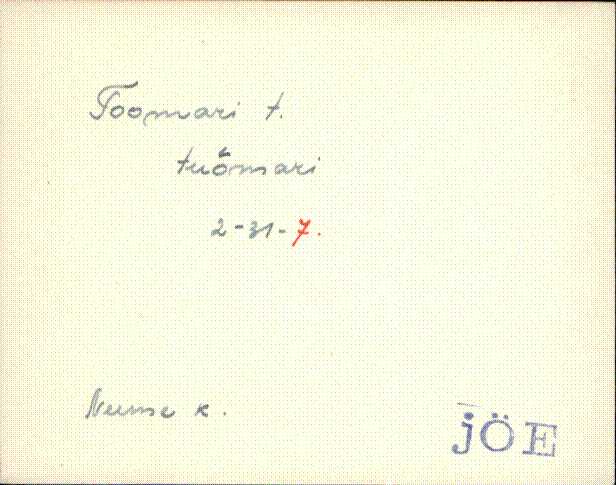 Toomari t.
tuȯ́mari
2-31-7.
Nurme k.
jÖE